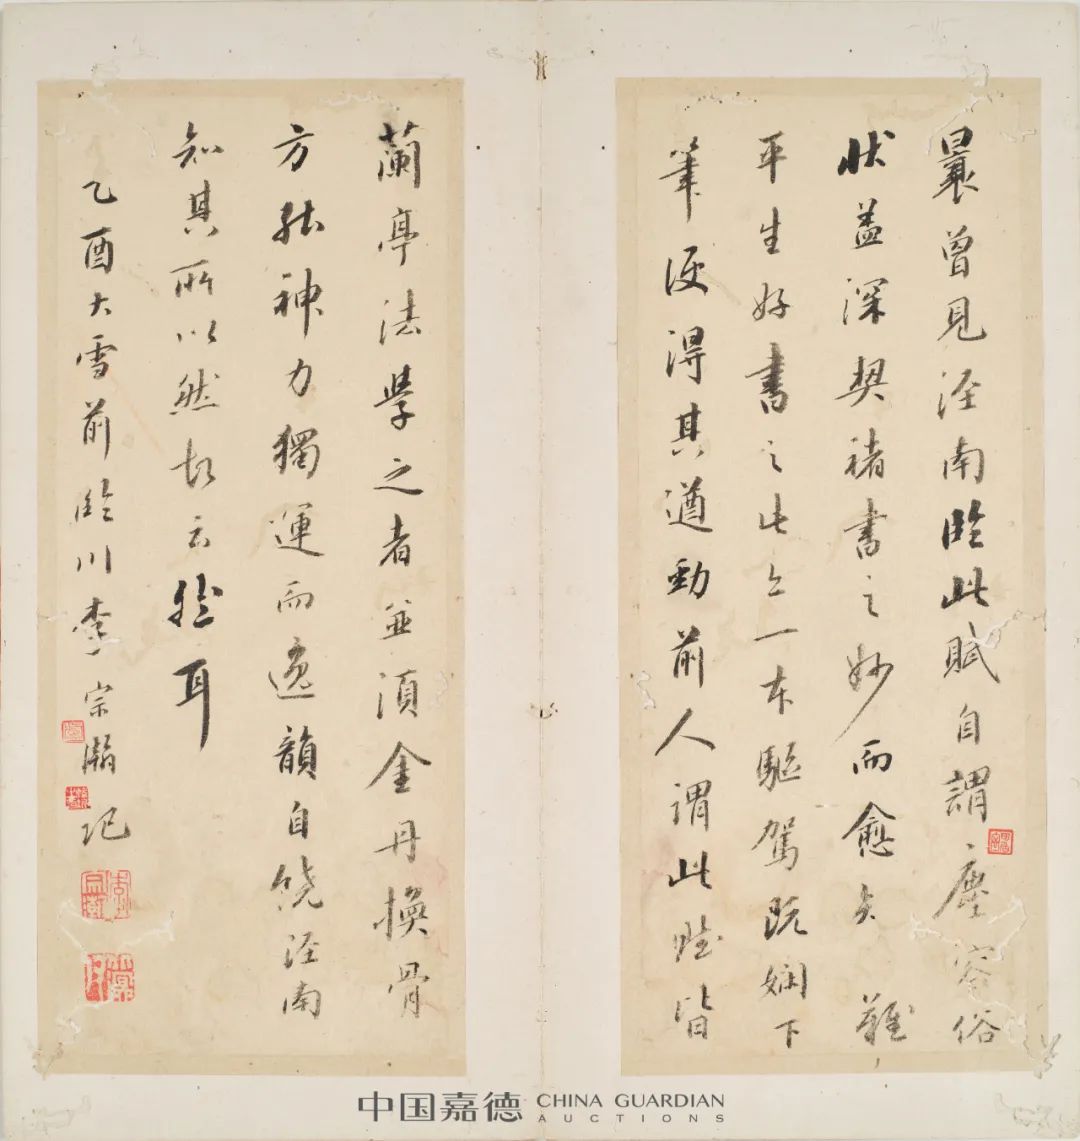 曩曾見涇南臨此賦自謂塵容俗
狀益深契褚書之妙而愈知難
平生好書之此一本驅駕既嫻下
筆便得其遒勁前人謂此賦皆
蘭亭法學之者並須金丹換骨
方能神力獨運而逸韻自饒涇南
知其所以然故云然耳
乙酉大雪前臨川李宗瀚記
中国嘉德 CHINA GUARDIAN
AUCTIONS